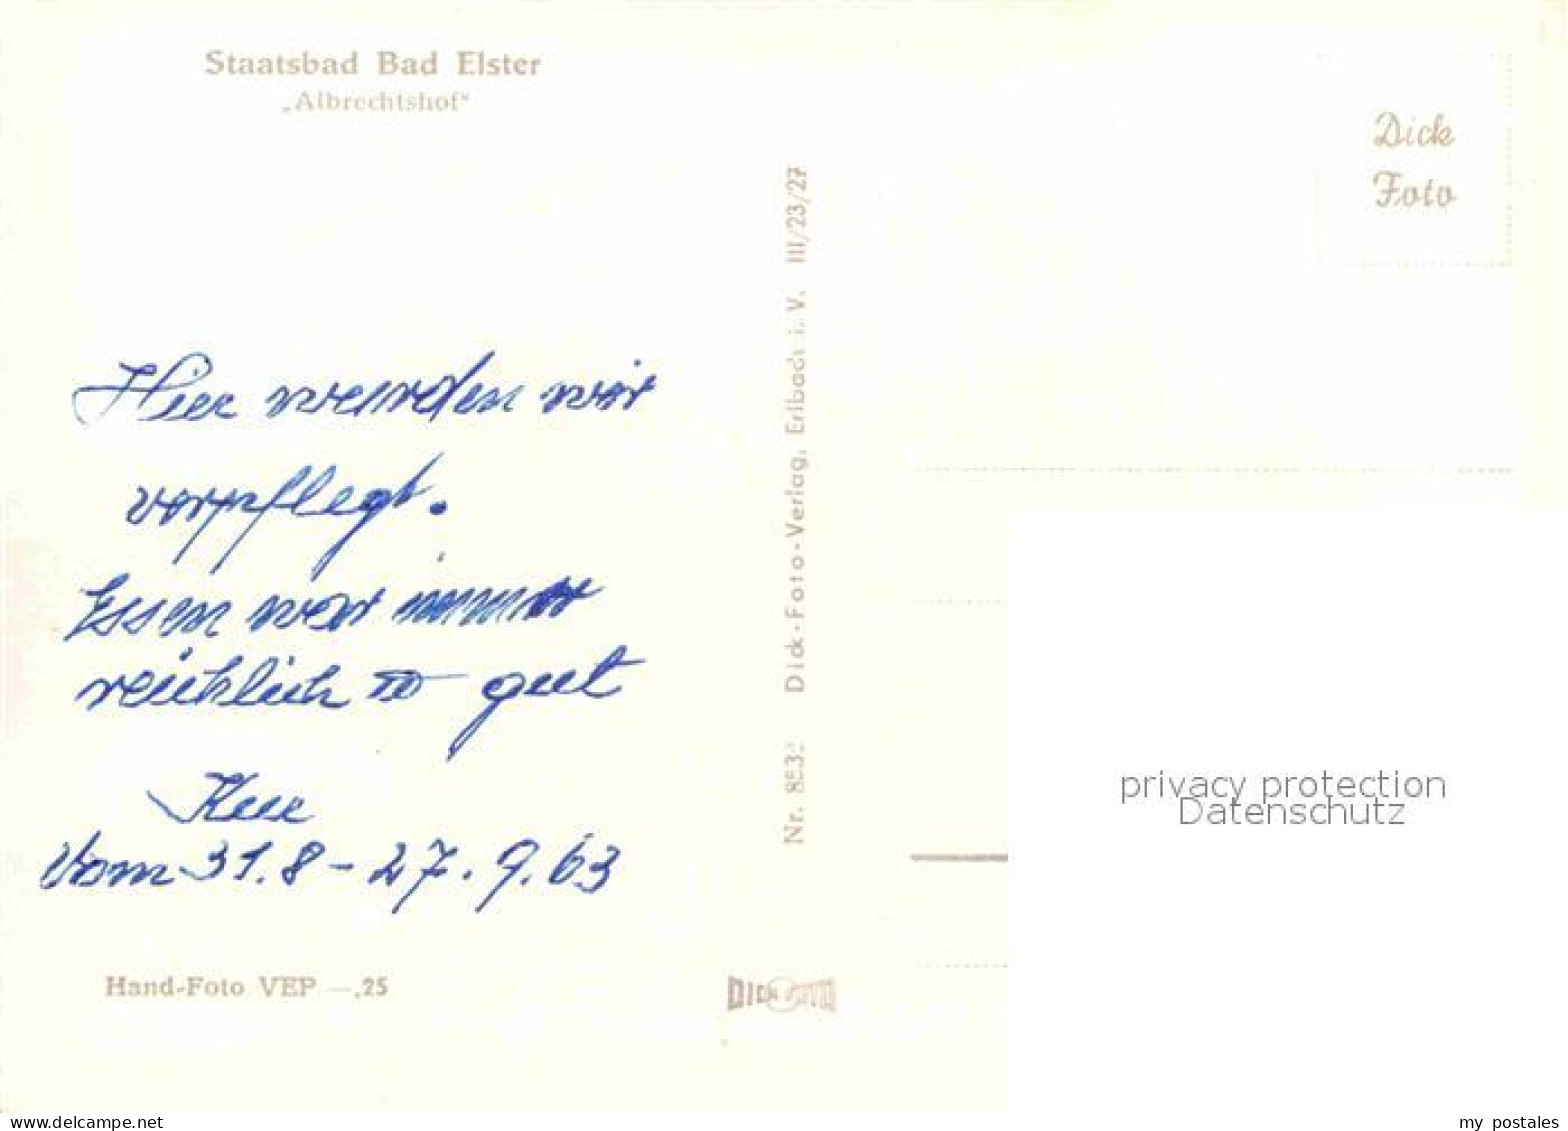 Staatsbad Bad Elster
„Albrechtshof“
Dick
Foto
Hier werden wir
verpflegt.
Essen war immer
reichlich gut
Kur
Vom 31.8 - 27.9.63
Nr. 853 Dick-Foto-Verlag, Erlbach i. V. III/23/27
Hand-Foto VEP —.25
DICK FOTO
privacy protection
Datenschutz
www.delcampe.net
my_postales